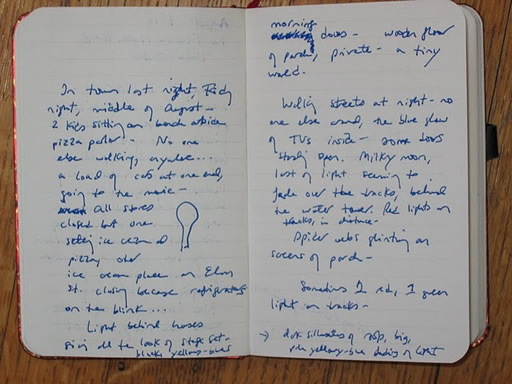 In town last night, Friday
night, middle of August –
2 kids sitting on bench outside
pizza parlor – No one
else walking, anywhere...
a load of cars at one end,
going to the movie –
All stores
closed but one
selling ice cream and
pizza, other
ice cream place on Elm
St. closing because refrigerator
on the blink...
Light behind houses
all the look of stage set –
black, yellow-
morning
doves – wooden floor
of porch, private – a tiny
world.
Walking streets at night – no
one else around, the blue glow
of TVs inside – some doors
open. Milky moon,
last of light seeming to
fade over the tracks, behind
the water tower. Red lights on
tracks, in distance –
Spider webs glinting on
screens of porch –
Sometimes 1 red, 1 green
light on tracks –
→ dark silhouettes of roofs, big,
yellow-blue of light